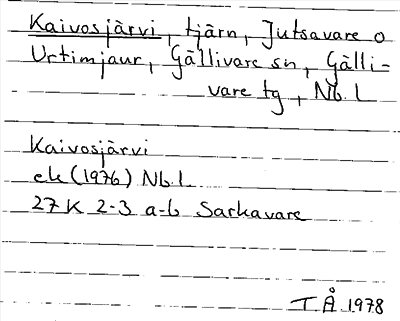 Kaivosjärvi, tjärn, Jutsavare o
Urtimjaur, Gällivare sn, Gälli-
vare tg, Nb. l
Kaivosjärvi
ek (1976) Nb. l
27 K 2-3 a-b Sarkavare
T Å 1978